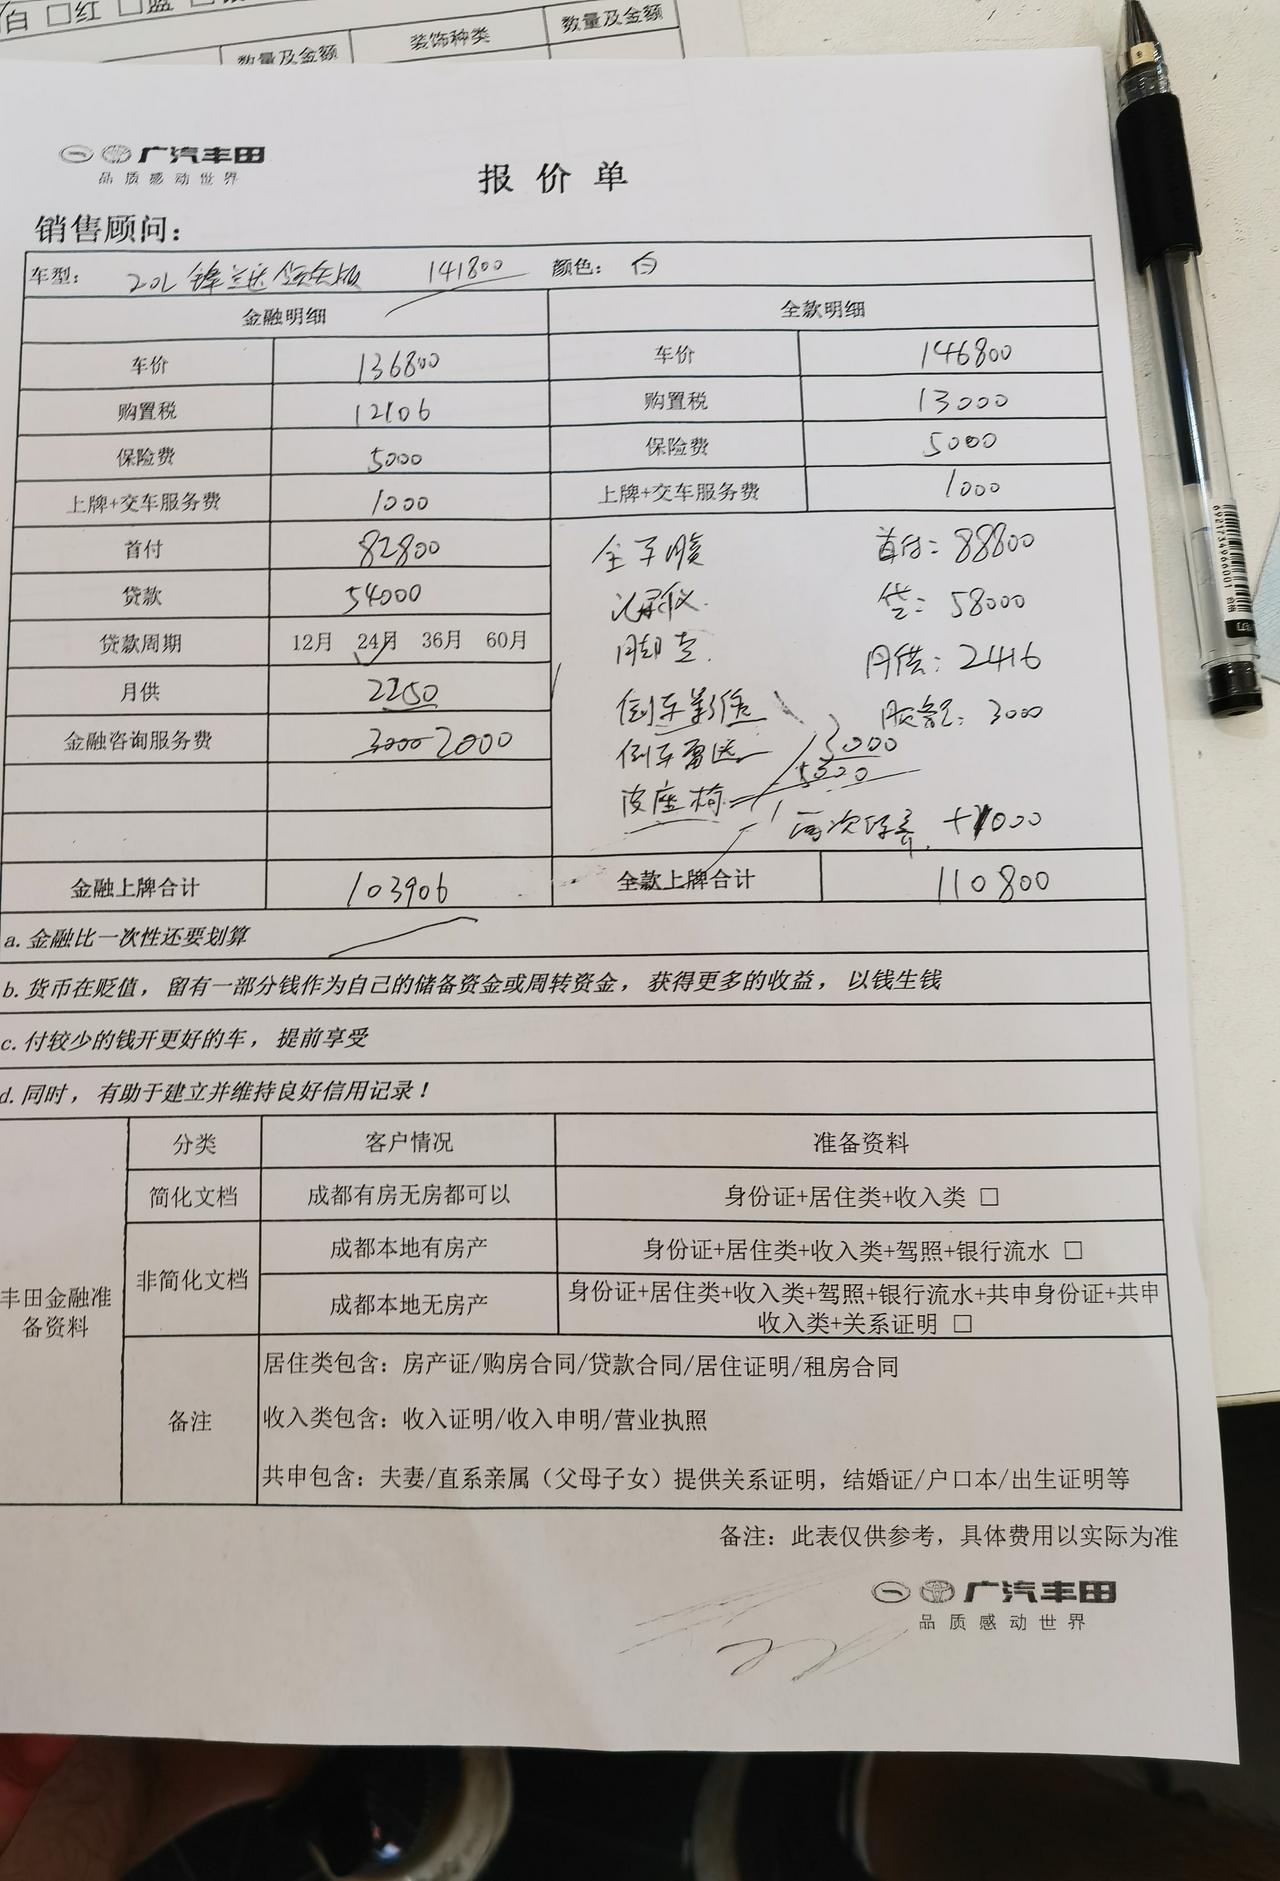 白 □红 □蓝
数量及金额 装饰种类 数量及金额
广汽丰田
品质感动世界
报价单
销售顾问：
车型： 2.0L 锋兰达 领先版 141800 颜色： 白
金融明细 全款明细
车价 136800 车价 146800
购置税 12106 购置税 13000
保险费 5000 保险费 5000
上牌+交车服务费 1000 上牌+交车服务费 1000
首付 82800 全车膜 首付：88800
贷款 54000 记录仪 贷：58000
贷款周期 12月 24月 36月 60月 脚垫
月供 2250 月供：2416
倒车影像 服务：3000
金融咨询服务费 3000 2000 倒车雷达 3000
皮座椅
两次保养 +1000
金融上牌合计 103906 全款上牌合计 110800
a. 金融比一次性还要划算
b. 货币在贬值，留有一部分钱作为自己的储备资金或周转资金，获得更多的收益，以钱生钱
c. 付较少的钱开更好的车，提前享受
d. 同时，有助于建立并维持良好信用记录！
分类 客户情况 准备资料
简化文档 成都有房无房都可以 身份证+居住类+收入类 □
非简化文档 成都本地有房产 身份证+居住类+收入类+驾照+银行流水 □
丰田金融准备资料 成都本地无房产 身份证+居住类+收入类+驾照+银行流水+共申身份证+共申
收入类+关系证明 □
备注 居住类包含：房产证/购房合同/贷款合同/居住证明/租房合同
收入类包含：收入证明/收入申明/营业执照
共申包含：夫妻/直系亲属（父母子女）提供关系证明，结婚证/户口本/出生证明等
备注：此表仅供参考，具体费用以实际为准
广汽丰田
品质感动世界
6921734966001